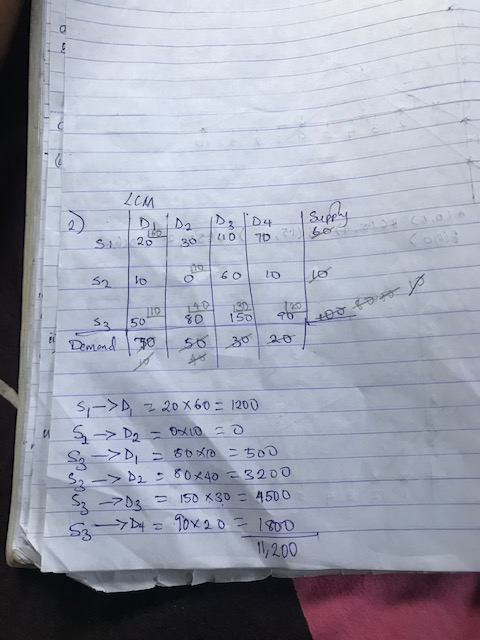 LCM
2) D1 D2 D3 D4 Supply
S1 20 60 30 110 70 60
S2 10 0 10 60 10 10
S3 50 10 80 40 150 30 90 20 100 10
Demand 70 50 30 20
10 40
S1 → D1 = 20 x 60 = 1200
S2 → D2 = 0x10 = 0
S3 → D1 = 50 x 10 = 500
S3 → D2 = 80 x 40 = 3200
S3 → D3 = 150 x 30 = 4500
S3 → D4 = 90 x 20 = 1800
11,200